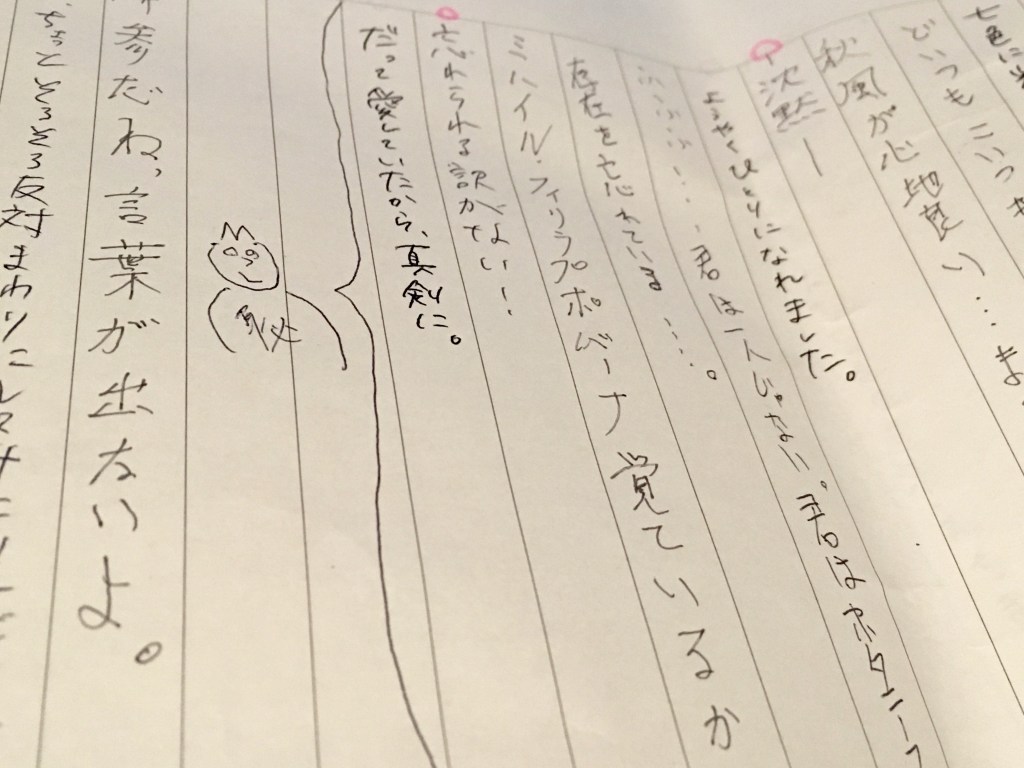 七色に
どいつもこいつも
秋風が心地良い…ま
沈黙ー
ようやくひとりになれました。
ふふふ…君は一人じゃない。君は
存在を忘れている….。
ミハイル・フィリラプポバーナ覚えているか
忘れられる訳がない!
だって愛していたから、真剣に。
参だね、言葉が出ないよ。
ちょっとそろそろ反対まわりに